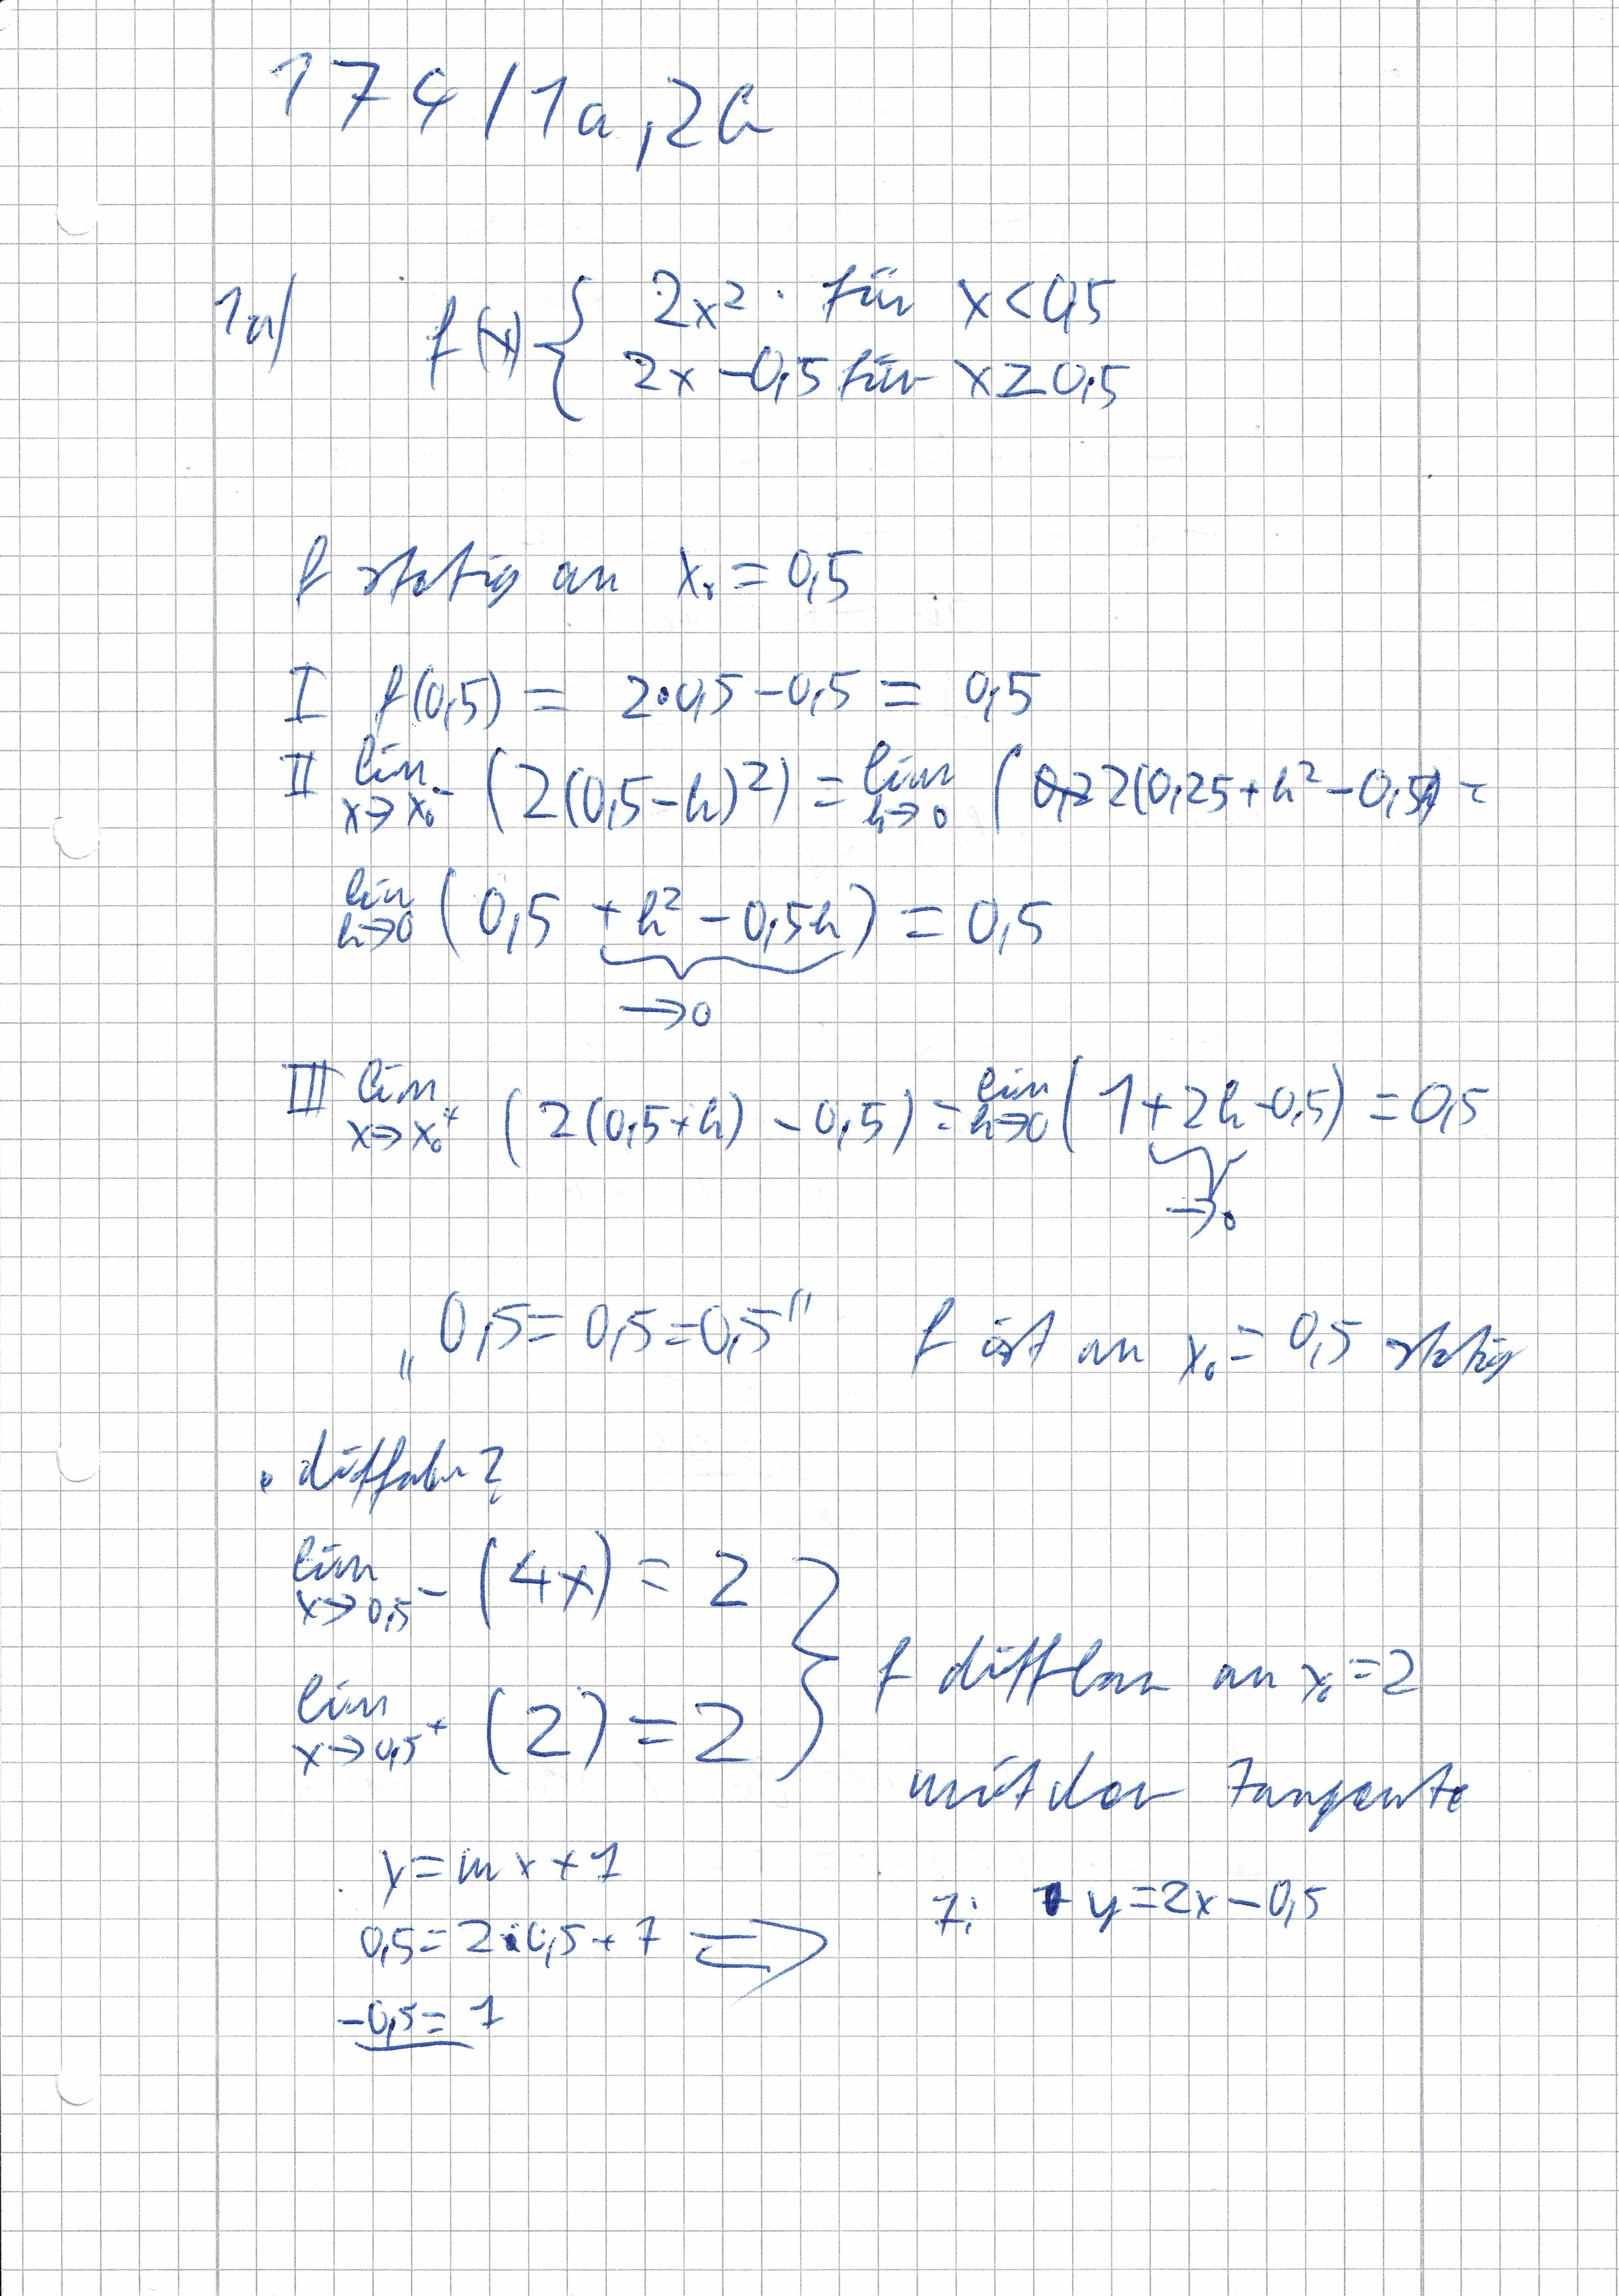 174/1a,2b
1a) f(x) { 2x² für x<0,5
2x-0,5 für x≥0,5
f stetig an x₀=0,5
I f(0,5) = 2·0,5-0,5 = 0,5
II lim x→x₀⁻ (2(0,5-h)²) = lim h→0 (2(0,25+h²-0,5h) =
lim h→0 (0,5 +h² -0,5h) = 0,5
→0
III lim x→x₀⁺ (2(0,5+h) -0,5) = lim h→0 (1+2h-0,5) = 0,5
→0
„0,5=0,5=0,5" f ist an x₀=0,5 stetig
· diffbar?
lim x→0,5⁻ (4x) = 2
f diffbar an x₀=2
lim x→0,5⁺ (2) = 2
mit der Tangente
y=mx+t
T: y=2x-0,5
0,5=2·0,5+t ⇒
-0,5=t